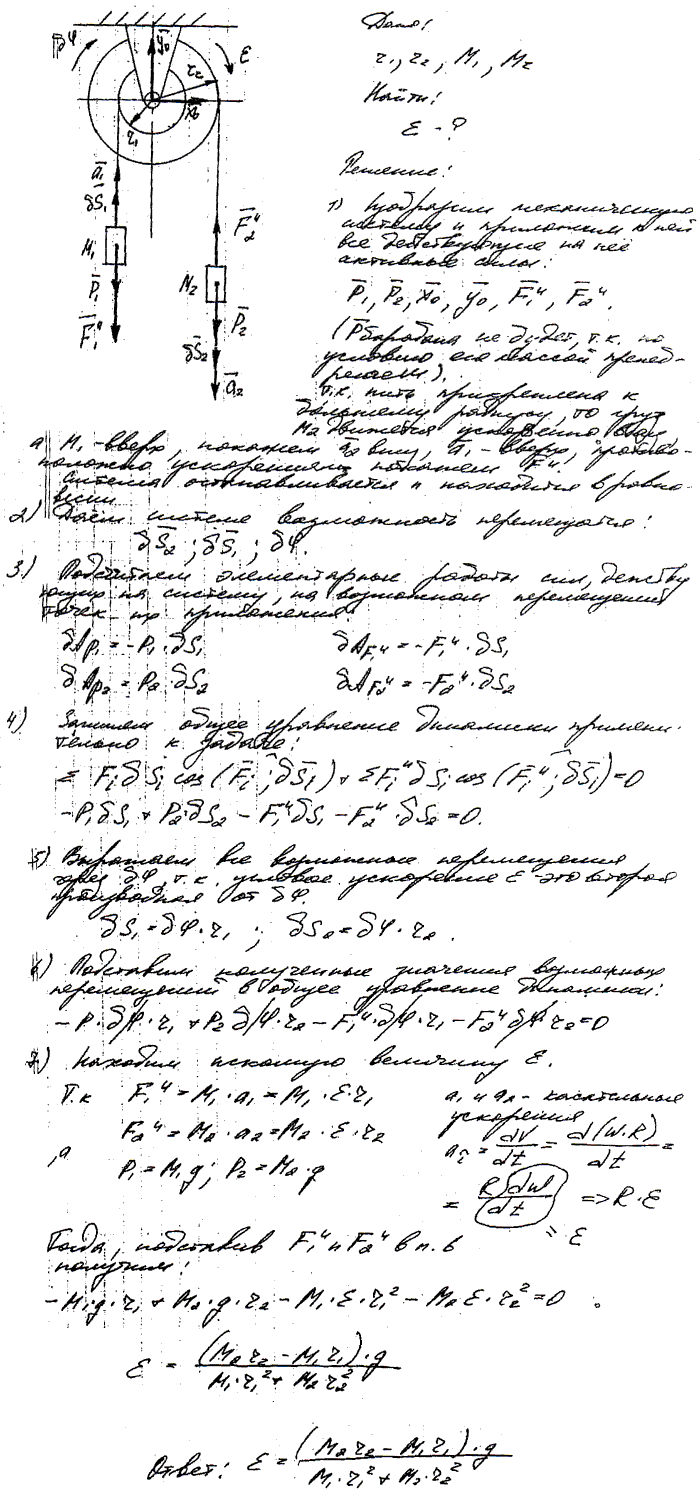 δφ
y̅₀
ε
r₂
x̅₀
r₁
a̅₁
δS̅₁
M₁
P̅₁
F̅₁ᵘ
F̅₂ᵘ
M₂
P̅₂
δS̅₂
a̅₂
Дано:
r₁, r₂, M₁, M₂
Найти:
ε - ?
Решение:
1) Изобразим механическую
систему и приложим к ней
все действующие на неё
активные силы:
P̅₁, P̅₂, x̅₀, y̅₀, F̅₁ᵘ, F̅₂ᵘ.
(P̅барабана не будет, т.к. по
условию его массой пренеб-
регаем).
Т.к. нить прикреплена к
большему радиусу, то груз
M₂ движется ускоренно вниз
а M₁ - вверх, покажем a̅₂ вниз, a̅₁ - вверх, противо-
положно ускорениям покажем F̅ᵘ,
система останавливается и находится в равно-
весии
2) Даём системе возможность перемещатся:
δS̅₂; δS̅₁; δφ.
3) Подсчитаем элементарные работы сил, действу
ющих на систему, на возможном перемещении
точек их приложения:
δA_P₁ = -P₁·δS₁ δA_F₁ᵘ = -F₁ᵘ·δS₁
δA_P₂ = P₂·δS₂ δA_F₂ᵘ = -F₂ᵘ·δS₂
4) Запишем общее уравнение динамики примени-
тельно к задаче:
Σ Fᵢ δSᵢ cos (F̅ᵢ;^δS̅ᵢ) + ΣFᵢᵘ δSᵢ cos (F̅ᵢᵘ;^δS̅ᵢ) = 0
-P₁δS₁ + P₂·δS₂ - F₁ᵘδS₁ - F₂ᵘ·δS₂ = 0.
5) Выражаем все возможные перемещения
через δφ т.к. угловое ускорение ε это вторая
производная от δφ.
δS₁ = δφ·r₁; δS₂ = δφ·r₂.
6) Подставим полученные значения возможных
перемещений в общее уравнение динамики:
-P·δφ·r₁ + P₂δφ·r₂ - F₁ᵘ·δφ·r₁ - F₂ᵘδφ·r₂ = 0
7) Находим искомую величину ε.
Т.к F₁ᵘ = M₁·a₁ = M₁·ε·r₁
F₂ᵘ = M₂·a₂ = M₂·ε·r₂
, а P₁ = M₁g; P₂ = M₂·g
a₁ и a₂ - касательные
ускорения
a_τ = dV/dt = d(W·R)/dt =
= R dW/dt => R·ε
= ε
Тогда, подставив F₁ᵘ и F₂ᵘ в п. 6
получим:
-M₁g·r₁ + M₂·g·r₂ - M₁·ε·r₁² - M₂ε·r₂² = 0.
ε = (M₂r₂ - M₁r₁)·g / M₁·r₁² + M₂r₂²
Ответ: ε = (M₂r₂ - M₁r₁)·g / M₁·r₁² + M₂·r₂²